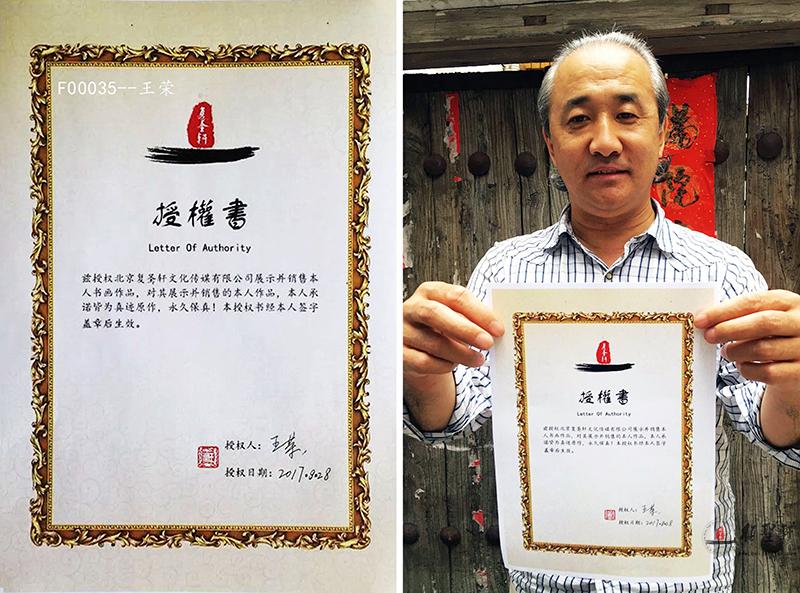 F00035--王荣
夏荃轩
授權書
Letter Of Authority
兹授权北京复荃轩文化传媒有限公司展示并销售本
人书画作品，对其展示并销售的本人作品，本人承
诺皆为真迹原作，永久保真！本授权书经本人签字
盖章后生效。
授权人：王荣
授权日期：2017.8.28
授權書
Letter Of Authority
兹授权北京复荃轩文化传媒有限公司展示并销售本
人书画作品，对其展示并销售的本人作品，本人承
诺皆为真迹原作，永久保真！本授权书经本人签字
盖章后生效。
授权人：王荣
授权日期：2017.8.28